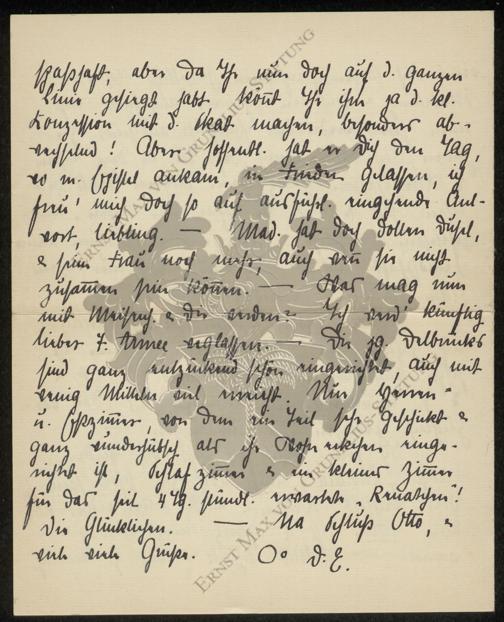 spaßhaft, aber da Ihr nun doch auf d. ganzen
Linie gesiegt habt könnt Ihr ihm ja d. kl.
Konzession mit d. Skat machen, besonders ab-
wechselnd! Aber hoffentl. hat er Dich den Tag,
wo m. Epistel ankam, in Frieden gelassen, ich
freu' mich doch so auf ausführl. eingehende Ant-
wort, Liebling. — Mad. hat doch dollen Dusel,
& seine Frau noch mehr, auch wenn sie nicht
zusammen sein können. — Was mag nun
mit & Dir werden? Ich werd' künftig
lieber 7. Armee weglassen. — Die jg. Delbrücks
sind ganz entzückend schön eingerichtet, auch mit
wenig Mitteln viel erreicht. Nur Herren-
u. Eßzimmer, von dem ein Teil sehr geschickt &
ganz wunderhübsch als ihr eckchen einge-
richtet ist, Schlafzimmer & ein kleines Zimmer
für das seit 4 Tg. stündl. erwartete "Renatchen"!
Die Glücklichen. — Na Schluß Otto, &
viele viele Grüße. D. E.
ERNST MAX VON GRUNELIUS-STIFTUNG
ERNST MAX VON GRUNELIUS-STIFTUNG